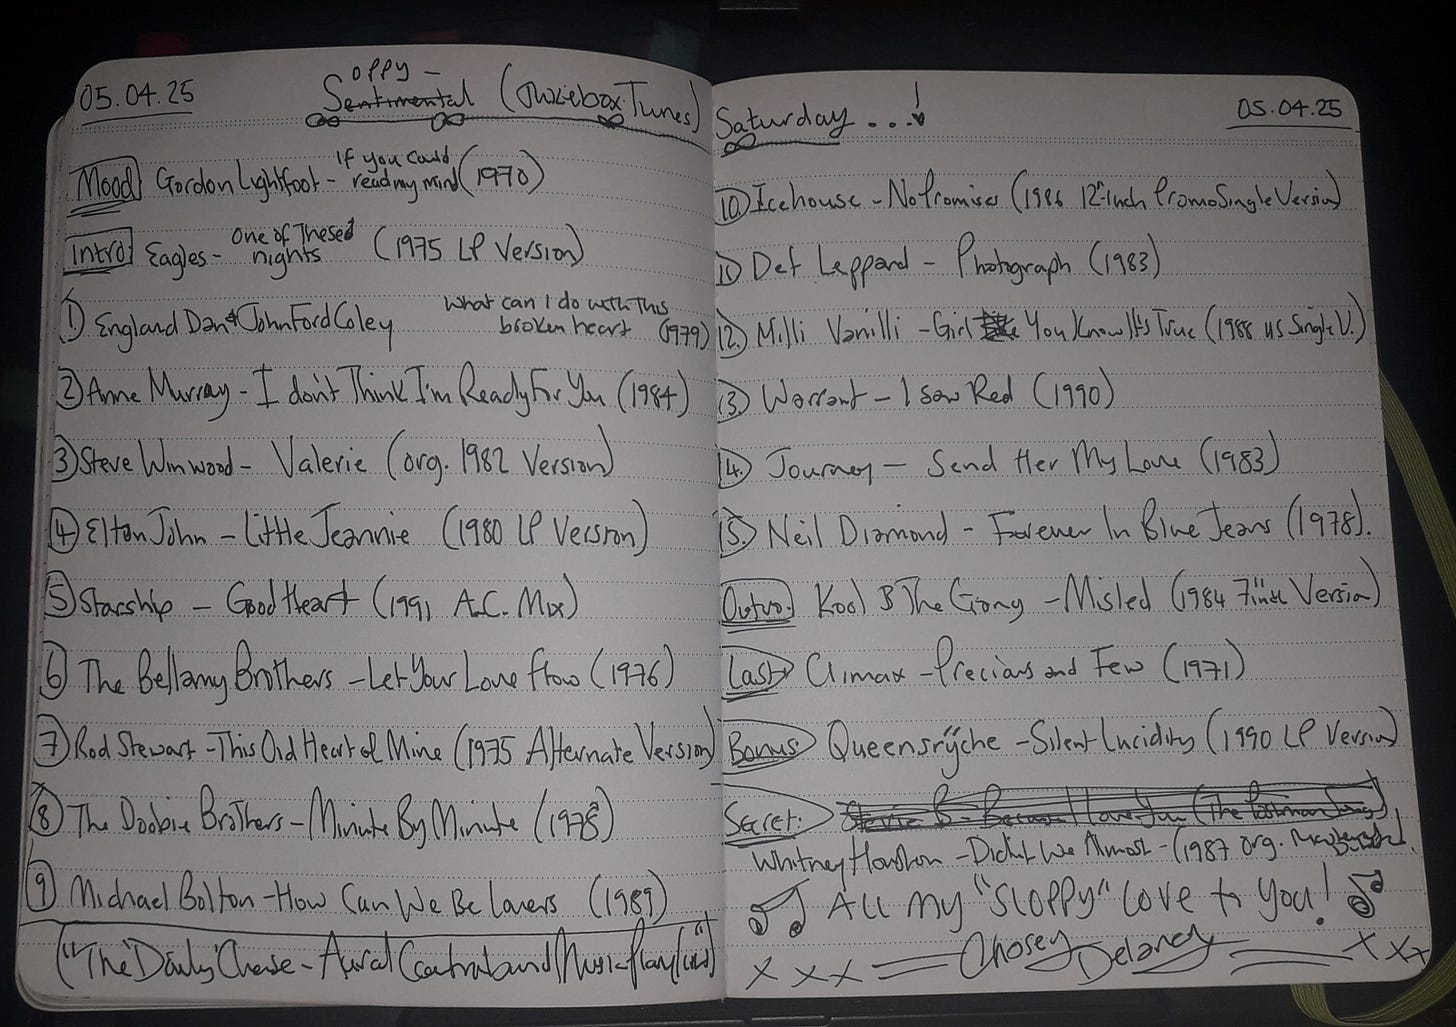 05.04.25
oppy -
Sentimental (Jukebox Tunes)
Mood Gordon Lightfoot - If you could
read my mind (1970)
Intro Eagles - One of These
nights (1975 LP Version)
1) England Dan & John Ford Coley What can I do with This
broken heart (1979)
2) Anne Murray - I don't Think I'm Ready For You (1984)
3) Steve Winwood - Valerie (org. 1982 Version)
4) Elton John - Little Jeannie (1980 LP Version)
5) Starship - Good Heart (1991 A.C. Mix)
6) The Bellamy Brothers - Let Your Love flow (1976)
7) Rod Stewart - This Old Heart of Mine (1975 Alternate Version)
8) The Doobie Brothers - Minute By Minute (1978)
9) Michael Bolton - How Can We Be Lovers (1989)
("The Daily Chose - Aural Contraband Music-Play
Saturday...!
05.04.25
10) Icehouse - No Promises (1986 12"-inch Promo Single Version)
11) Def Leppard - Photograph (1983)
12.) Milli Vanilli - Girl You Know It's True (1988 US Single V.)
13) Warrant - I Saw Red (1990)
14.) Journey - Send Her My Love (1983)
15.) Neil Diamond - Forever In Blue Jeans (1978).
Outro.) Kool & The Gang - Misled (1984 7"inch Version)
Last Climax - Precious and Few (1971)
Bonus Queensrÿche - Silent Lucidity (1990 LP Version)
Secret: Stevie B - Because I Love You (The Postman Song)
Whitney Houston - Didn't We Almost - (1987 org.
All my "SLOPPY" LOVE to YOU!
Chosey Delaney
x x x x x x